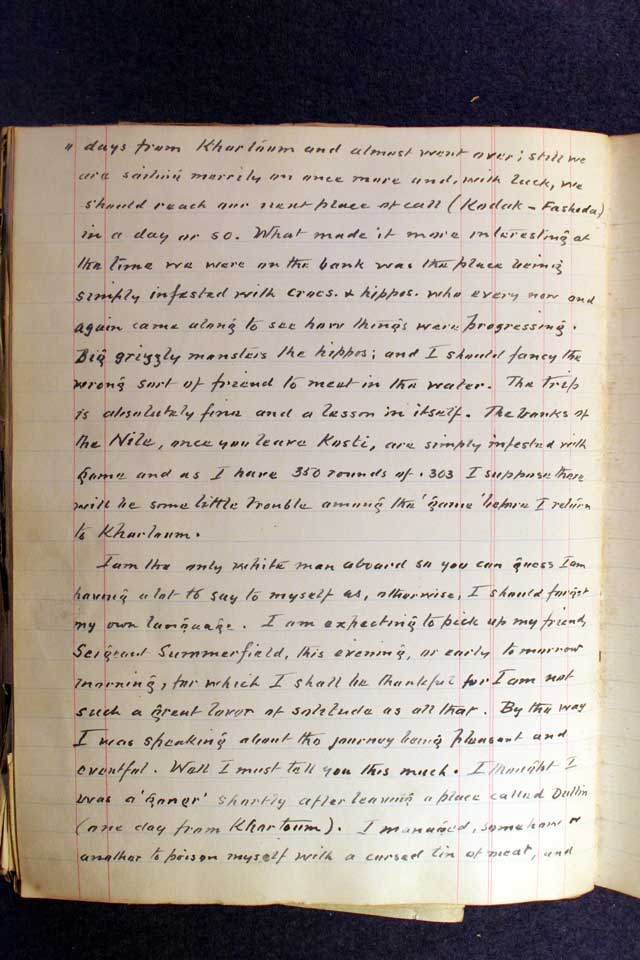 " days from Khartoum and almost went over; still we
are sailing merrily on once more and, with luck, we
should reach our next place of call (Kodak - Fashoda)
in a day or so. What made it more interesting at
the time we were on the bank was the place being
simply infested with crocs. & hippos. who every now and
again came along to see how things were progressing.
Big grizzly monsters the hippos; and I should fancy the
wrong sort of friend to meet in the water. The trip
is absolutely fine and a lesson in itself. The banks of
the Nile, once you leave Kosti, are simply infested with
game and as I have 350 rounds of .303 I suppose there
will be some little trouble among the 'game' before I return
to Khartoum.
I am the only white man aboard so you can guess I am
having a lot to say to myself as, otherwise, I should forget
my own language. I am expecting to pick up my friend
Seigeant Summerfield, this evening, or early to morrow
morning, for which I shall be thankful for I am not
such a great lover of solitude as all that. By the way
I was speaking about the journey being pleasant and
eventful. Well I must tell you this much. I thought I
was a 'goner' shortly after leaving a place called Dullin
(one day from Khartoum). I managed, somehow or
another to poison myself with a cursed tin of meat, and